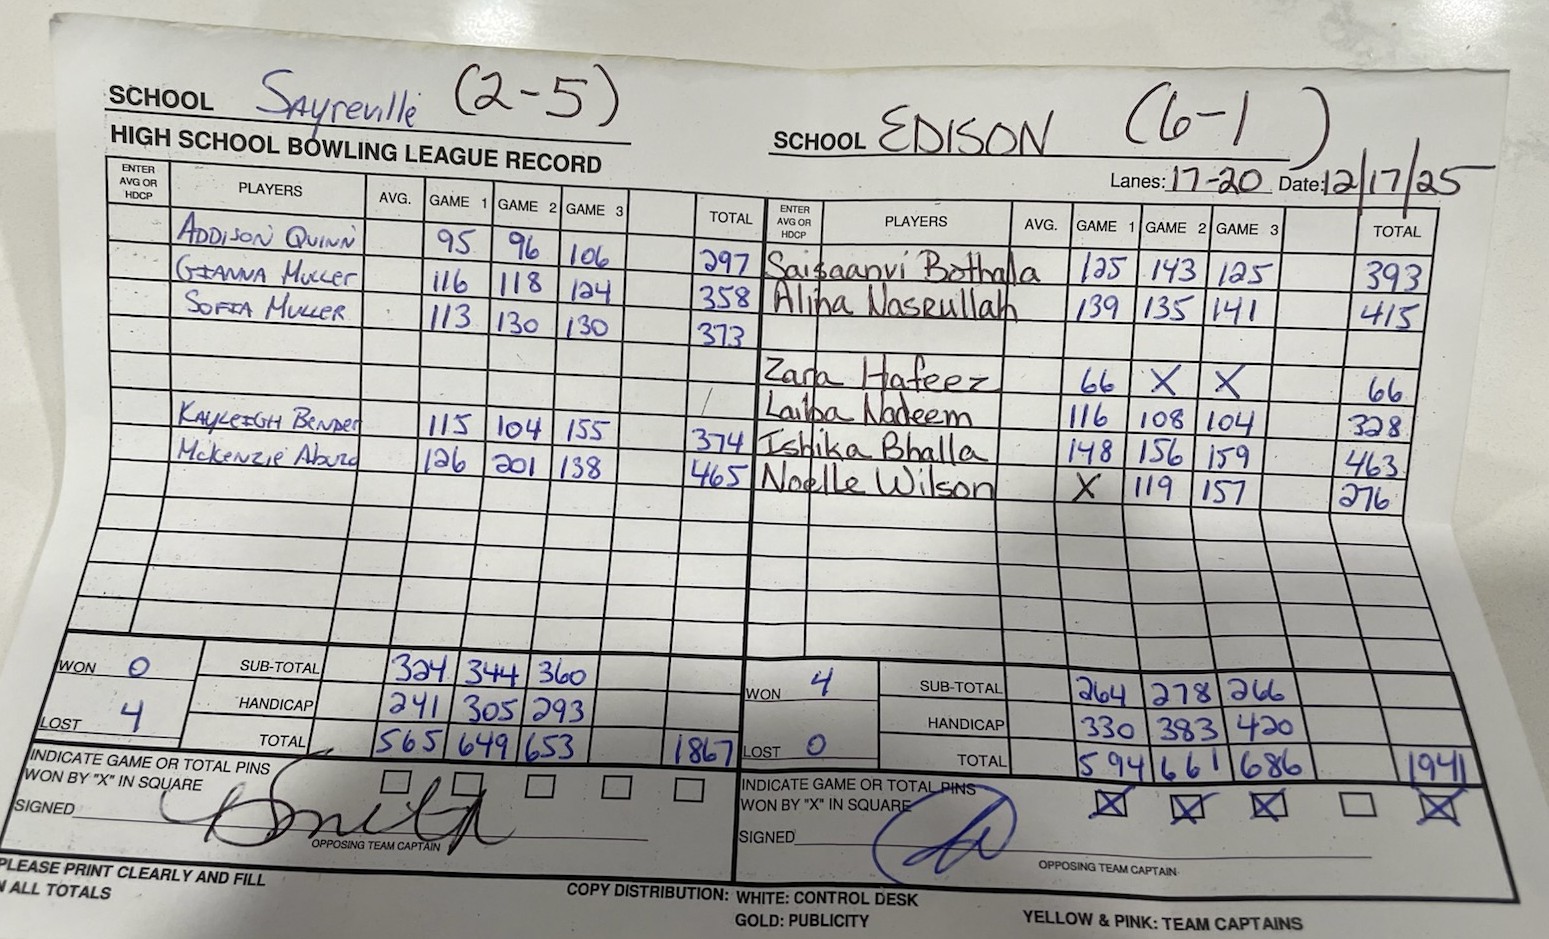 SCHOOL Sayreville (2-5)
HIGH SCHOOL BOWLING LEAGUE RECORD
ENTER AVG OR HDCP PLAYERS AVG. GAME 1 GAME 2 GAME 3 TOTAL
ADDISON QUINN 95 96 106 297
GIANNA MULLER 116 118 124 358
SOFIA MULLER 113 130 130 373
KAYLEIGH BENDER 115 104 155 374
McKENZIE 126 201 138 465
WON 0 SUB-TOTAL 324 344 360
HANDICAP 241 305 293
LOST 4 TOTAL 565 649 653 1867
INDICATE GAME OR TOTAL PINS
WON BY "X" IN SQUARE
SIGNED Smith
OPPOSING TEAM CAPTAIN
SCHOOL EDISON (6-1)
Lanes: 17-20 Date: 12/17/25
ENTER AVG OR HDCP PLAYERS AVG. GAME 1 GAME 2 GAME 3 TOTAL
Saisaanvi Bothala 125 143 125 393
Alina Nasrullah 139 135 141 415
Zara Hafeez 66 X X 66
Laiba Nadeem 116 108 104 328
Ishika Bhalla 148 156 159 463
Noelle Wilson X 119 157 276
WON 4 SUB-TOTAL 264 278 266
HANDICAP 330 383 420
LOST 0 TOTAL 594 661 686 1941
INDICATE GAME OR TOTAL PINS
WON BY "X" IN SQUARE X X X X
SIGNED
OPPOSING TEAM CAPTAIN
PLEASE PRINT CLEARLY AND FILL
ALL TOTALS
COPY DISTRIBUTION: WHITE: CONTROL DESK
GOLD: PUBLICITY
YELLOW & PINK: TEAM CAPTAINS